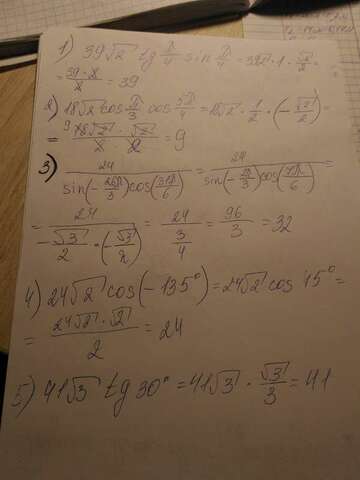 1) 39√2 tg π/4 sin π/4 = 39√2 · 1 · √2/2 =
= 39·2/2 = 39
2) 18√2 cos π/3 cos 3π/4 = 18√2 · 1/2 · (-√2/2) =
= 9 18√2·√2/2·2 = 9
3) 24/(sin(-26π/3) cos(31π/6)) = 24/(sin(-2π/3) cos(7π/6)) =
= 24/(-√3/2 · (-√3/2)) = 24/(3/4) = 96/3 = 32
4) 24√2 cos(-135°) = 24√2 cos 45° =
= 24√2·√2/2 = 24
5) 41√3 tg 30° = 41√3 · √3/3 = 41